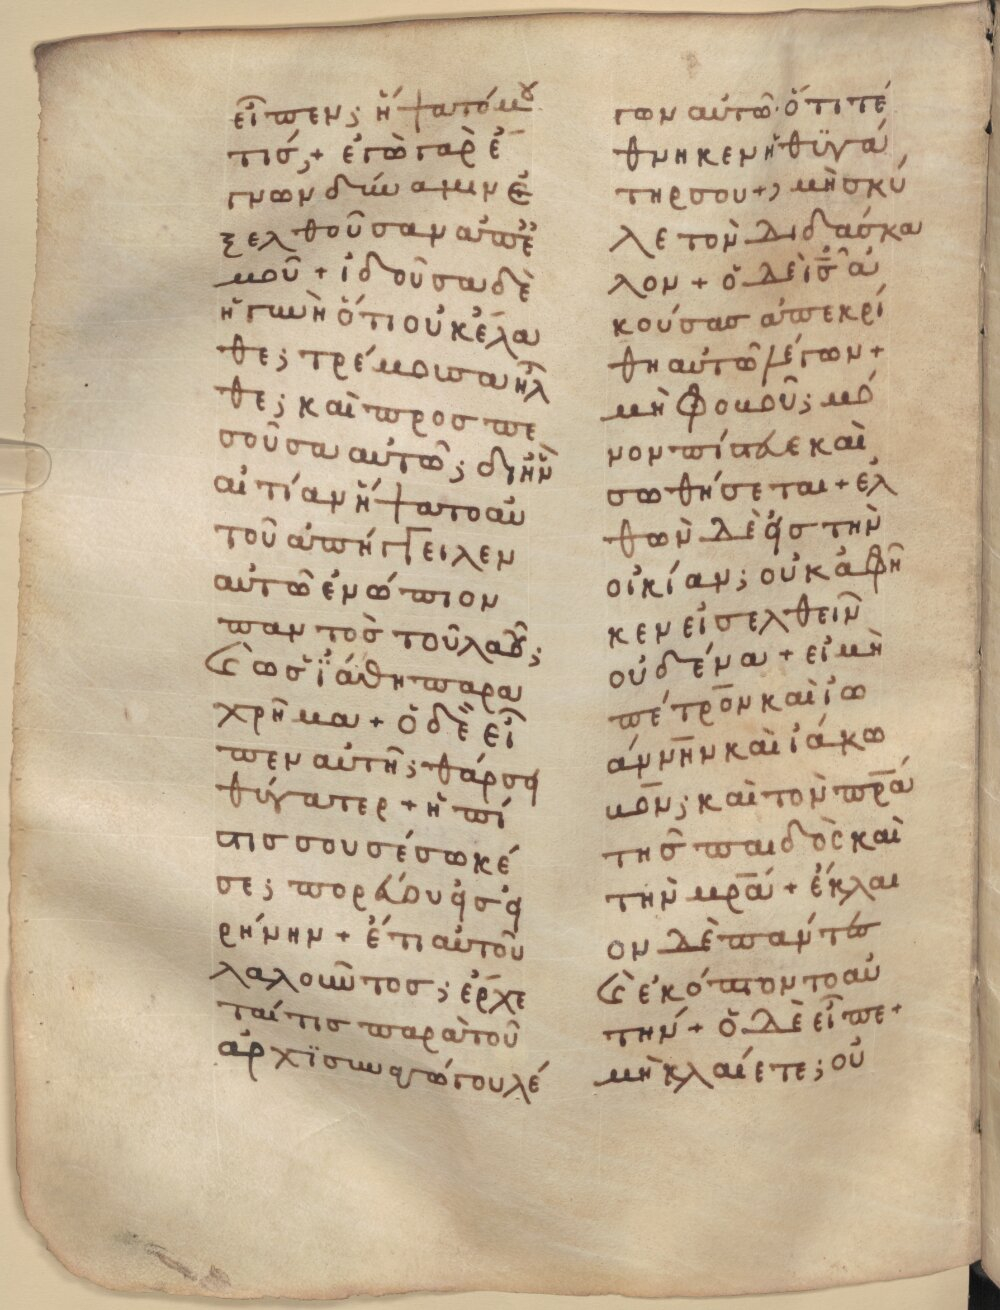 εἶπεν; ἥψατό μου
τίς;+ ἐγὼ γὰρ ἔ
γνων δύναμιν ἐ
ξελθοῦσαν ἀπ' ἐ
μοῦ + ἰδοῦσα δὲ
ἡ γυνὴ ὅτι οὐκ ἔλα
θε; τρέμουσα ἦλ
θε; καὶ προσπε
σοῦσα αὐτῶ; δι' ἣν
αἰτίαν ἥψατο αὐ
τοῦ ἀπήγγειλεν
αὐτῶ ἐνώπιον
παντὸς τοῦ λαοῦ;
Ϛ ὡς ἰάθη παρα
χρῆμα + ὁ δὲ εἶ
πεν αὐτῆ; θάρσει
θύγατερ + ἡ πί
στις σου σέσωκέ
σε; πορεύου εἰς εἰ
ρήνην + ἔτι αὐτοῦ
λαλοῦντος; ἔρχε
ταί τις παρὰ τοῦ
ἀρχϊσυναγώγου λέ
γων αὐτῶ· ὅτι τέ
θνηκεν ἡ θϋγά
τηρ σου +, μὴ σκύ
λε τὸν διδάσκα
λον + ὁ δὲ ι̅ς̅ ἀ
κούσας ἀπεκρί
θη αὐτῶ λέγων +
μὴ φοβοῦ; μό
νον πίστευε καὶ
σωθήσεται + ἐλ
θὼν δὲ εἰς τὴν
οἰκίαν; οὐκ ἀφῆ
κεν εἰσελθεῖν
οὐδένα + εἰ μὴ
πέτρο̅ν καὶ ἰω
άννη̅ν καὶ ἰάκω
βο̅ν; καὶ τὸν π̅ρ̅α
τῆς παιδὸς καὶ
τὴν μ̅ρ̅α + ἔκλαι
ον δὲ πάντες
Ϛ ἐκόπτοντο αὐ
τήν + ὁ δὲ εἶπε +
μὴ κλαίετε; οὐ